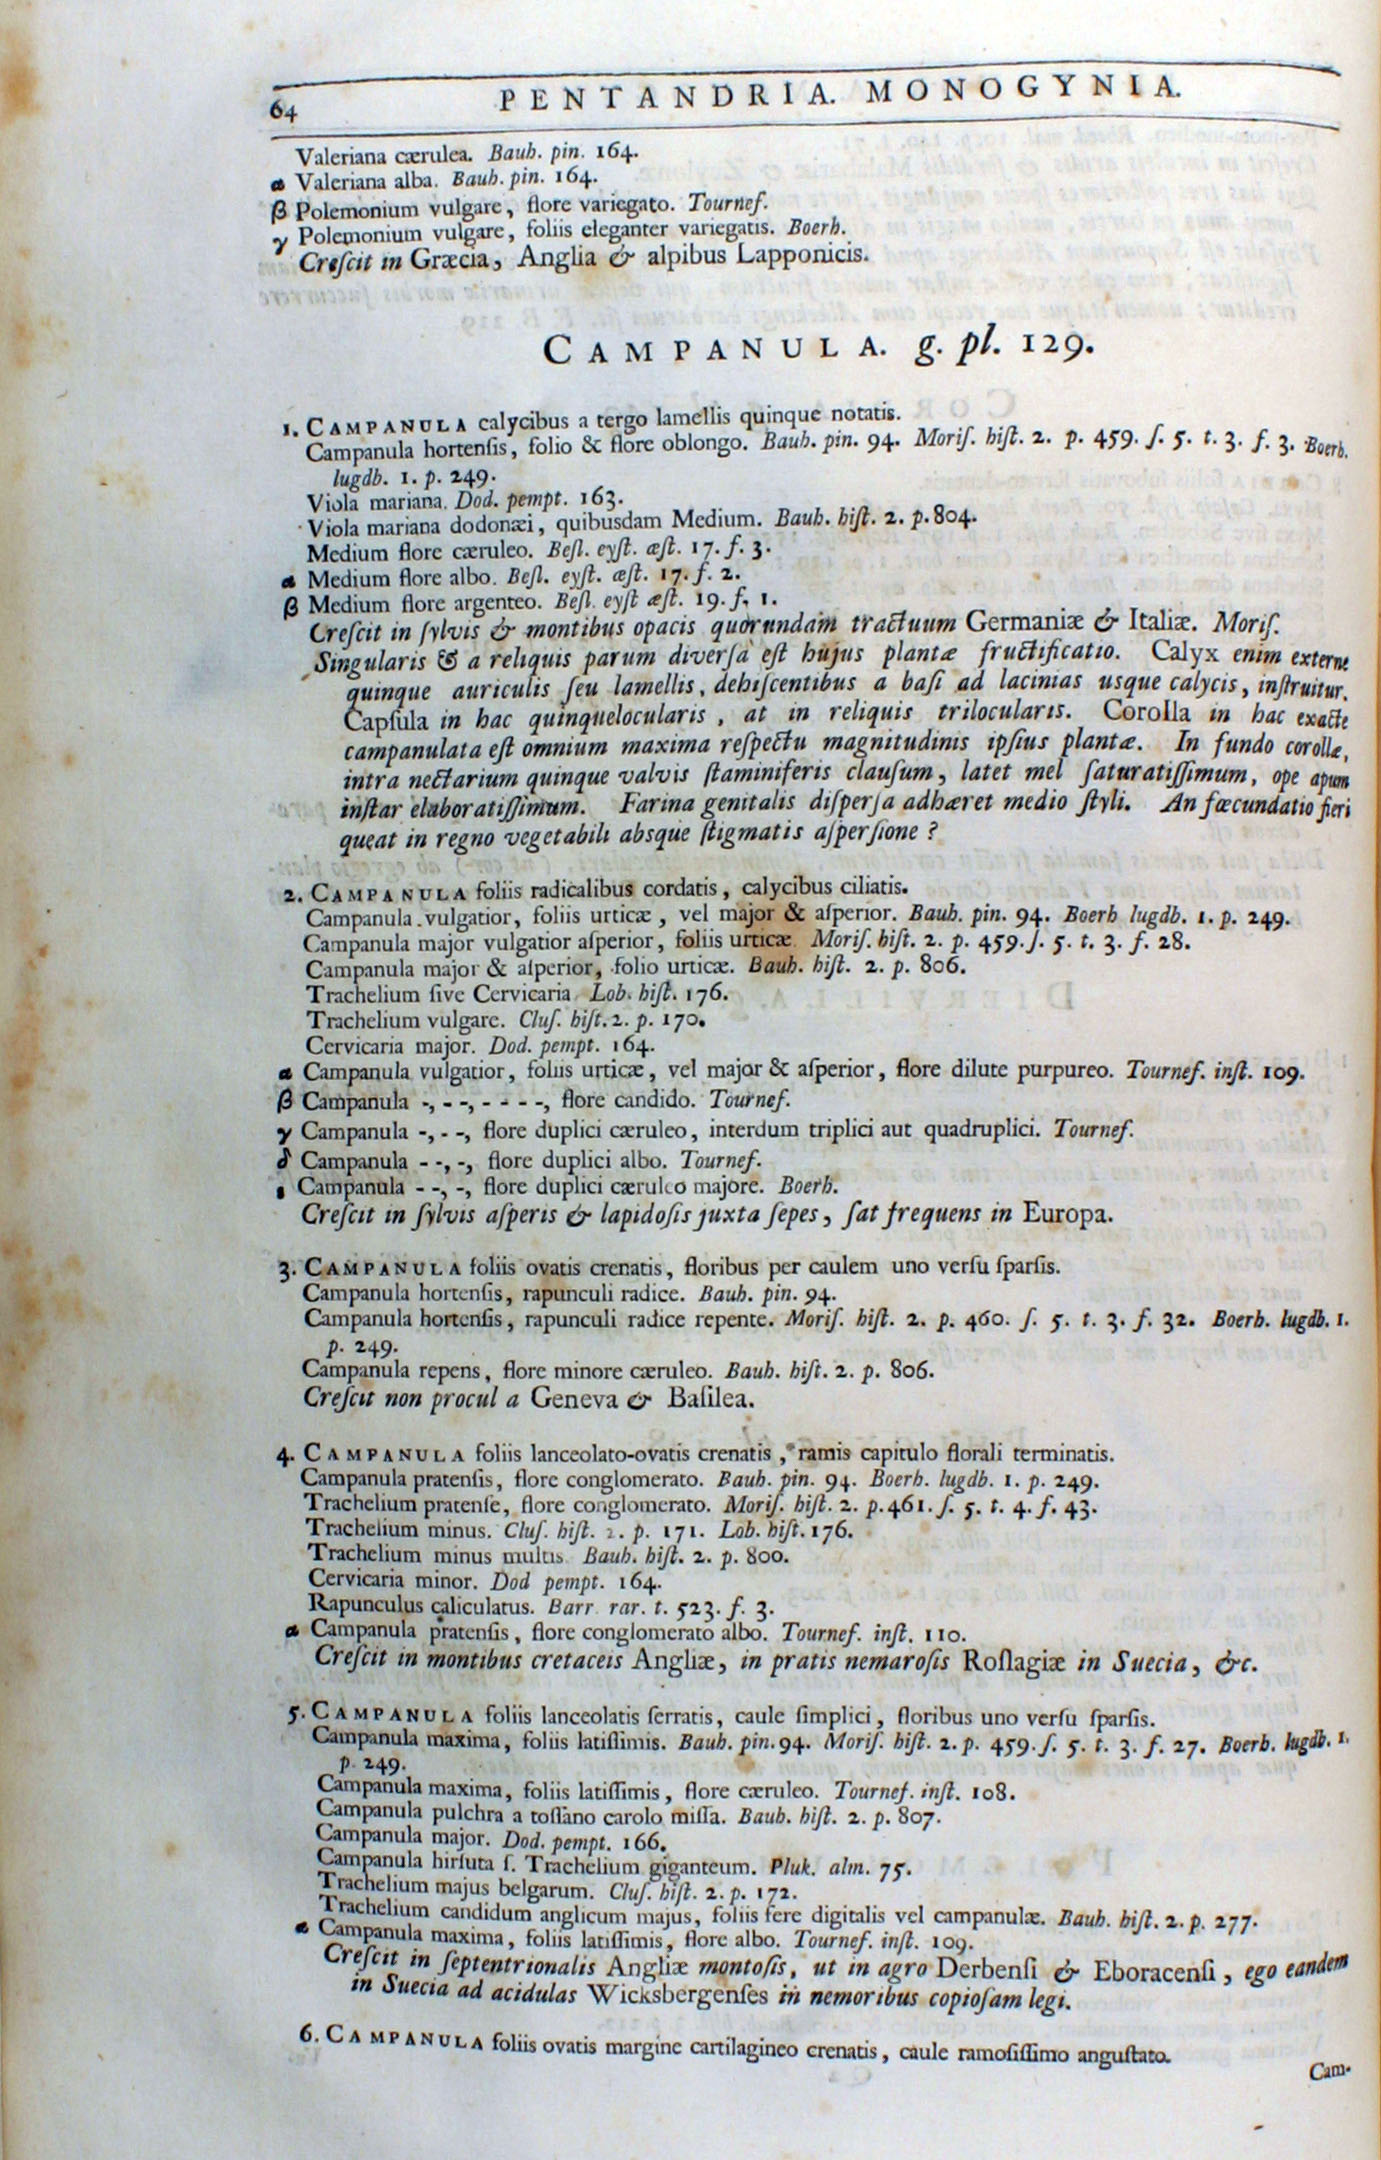 64 PENTANDRIA. MONOGYNIA.
Valeriana cærulea. Bauh. pin. 164.
α Valeriana alba. Bauh. pin. 164.
β Polemonium vulgare, flore variegato. Tournef.
γ Polemonium vulgare, foliis eleganter variegatis. Boerh.
Creſcit in Græcia, Anglia & alpibus Lapponicis.
CAMPANULA. g. pl. 129.
1. CAMPANULA calycibus a tergo lamellis quinque notatis.
Campanula hortenſis, folio & flore oblongo. Bauh. pin. 94. Moriſ. hiſt. 2. p. 459. ſ. 5. t. 3. f. 3. Boerh.
lugdb. 1. p. 249.
Viola mariana. Dod. pempt. 163.
Viola mariana dodonæi, quibusdam Medium. Bauh. hiſt. 2. p. 804.
Medium flore cæruleo. Beſl. eyſt. æſt. 17. f. 3.
α Medium flore albo. Beſl. eyſt. æſt. 17. f. 2.
β Medium flore argenteo. Beſl. eyſt æſt. 19. f. 1.
Creſcit in ſylvis & montibus opacis quorundam tractuum Germaniæ & Italiæ. Moriſ.
Singularis & a reliquis parum diverſa eſt hujus plantæ fructificatio. Calyx enim externe
quinque auriculis ſeu lamellis, dehiſcentibus a baſi ad lacinias usque calycis, inſtruitur.
Capſula in hac quinquelocularis, at in reliquis trilocularis. Corolla in hac exacte
campanulata eſt omnium maxima reſpectu magnitudinis ipſius plantæ. In fundo corollæ,
intra nectarium quinque valvis ſtaminiferis clauſum, latet mel ſaturatiſſimum, ope apum
inſtar elaboratiſſimum. Farina genitalis diſperſa adhæret medio ſtyli. An fœcundatio fieri
queat in regno vegetabili absque ſtigmatis aſperſione?
2. CAMPANULA foliis radicalibus cordatis, calycibus ciliatis.
Campanula vulgatior, foliis urticæ, vel major & aſperior. Bauh. pin. 94. Boerh lugdb. 1. p. 249.
Campanula major vulgatior aſperior, foliis urticæ. Moriſ. hiſt. 2. p. 459. ſ. 5. t. 3. f. 28.
Campanula major & aſperior, folio urticæ. Bauh. hiſt. 2. p. 806.
Trachelium ſive Cervicaria. Lob. hiſt. 176.
Trachelium vulgare. Cluſ. hiſt. 2. p. 170.
Cervicaria major. Dod. pempt. 164.
α Campanula vulgatior, foliis urticæ, vel major & aſperior, flore dilute purpureo. Tournef. inſt. 109.
β Campanula -, - -, - - - -, flore candido. Tournef.
γ Campanula -, - -, flore duplici cæruleo, interdum triplici aut quadruplici. Tournef.
δ Campanula - -, -, flore duplici albo. Tournef.
Campanula - -, -, flore duplici cæruleo majore. Boerh.
Creſcit in ſylvis aſperis & lapidoſis juxta ſepes, ſat frequens in Europa.
3. CAMPANULA foliis ovatis crenatis, floribus per caulem uno verſu ſparſis.
Campanula hortenſis, rapunculi radice. Bauh. pin. 94.
Campanula hortenſis, rapunculi radice repente. Moriſ. hiſt. 2. p. 460. ſ. 5. t. 3. f. 32. Boerh. lugdb. 1.
p. 249.
Campanula repens, flore minore cæruleo. Bauh. hiſt. 2. p. 806.
Creſcit non procul a Geneva & Baſilea.
4. CAMPANULA foliis lanceolato-ovatis crenatis, ramis capitulo florali terminatis.
Campanula pratenſis, flore conglomerato. Bauh. pin. 94. Boerh. lugdb. 1. p. 249.
Trachelium pratenſe, flore conglomerato. Moriſ. hiſt. 2. p. 461. ſ. 5. t. 4. f. 43.
Trachelium minus. Cluſ. hiſt. 2. p. 171. Lob. hiſt. 176.
Trachelium minus multis. Bauh. hiſt. 2. p. 800.
Cervicaria minor. Dod pempt. 164.
Rapunculus caliculatus. Barr. rar. t. 523. f. 3.
α Campanula pratenſis, flore conglomerato albo. Tournef. inſt. 110.
Creſcit in montibus cretaceis Angliæ, in pratis nemaroſis Roſlagiæ in Suecia, &c.
5. CAMPANULA foliis lanceolatis ſerratis, caule ſimplici, floribus uno verſu ſparſis.
Campanula maxima, foliis latiſſimis. Bauh. pin. 94. Moriſ. hiſt. 2. p. 459. ſ. 5. t. 3. f. 27. Boerh. lugdb. 1.
p. 249.
Campanula maxima, foliis latiſſimis, flore cæruleo. Tournef. inſt. 108.
Campanula pulchra a toſſano carolo miſſa. Bauh. hiſt. 2. p. 807.
Campanula major. Dod. pempt. 166.
Campanula hirſuta ſ. Trachelium giganteum. Pluk. alm. 75.
Trachelium majus belgarum. Cluſ. hiſt. 2. p. 172.
Trachelium candidum anglicum majus, foliis fere digitalis vel campanulæ. Bauh. hiſt. 2. p. 277.
α Campanula maxima, foliis latiſſimis, flore albo. Tournef. inſt. 109.
Creſcit in ſeptentrionalis Angliæ montoſis, ut in agro Derbenſi & Eboracenſi, ego eandem
in Suecia ad acidulas Wicksbergenſes in nemoribus copioſam legi.
6. CAMPANULA foliis ovatis margine cartilagineo crenatis, caule ramoſiſſimo anguſtato.
Cam-